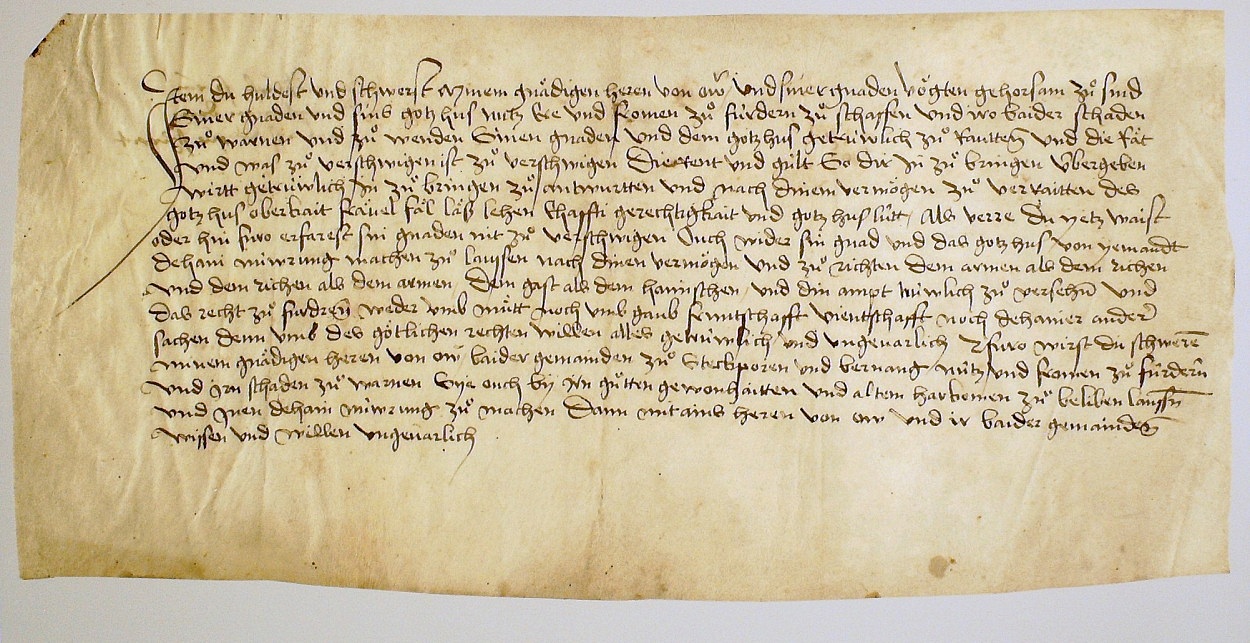 Item du huldest und schwerst mynem gnädigen heren von ow und siner gnaden vögten gehorsam zů sind
Siner gnaden und sins gotzhus nutz Ere und fromen zů fürdern zů schaffen und wo baider schaden
zů warnen und zů wenden Sinen gnaden und dem gotzhus getrüwlich zů Rautten und die Rät
und was zů verschwigen ist zů verschwigen Die Rent und gült So dir In zů bringen übergeben
wirtt getrüwlich In zů bringen zů antwurtten und nach dinem vermögen zů verraitten des
gotzhus oberkait frävel fäl läß lehen Ehaffti gerechtigkait und gotzhuslütt / Als verre du yetz waist
oder hin füro erfarest sin gnaden nit zů verschwigen Ouch wider sin gnad und das gotzhus von yemandt
dehain nüwrung machen zů laussen nach dinen vermögen und zů richten dem armen als dem richen
und dem richen als dem armen Dem gast als dem haimschen / und din ampt trüwlich zů versehn̄ und
das recht zů fürdren̄ weder umb mütt noch umb gaub früntschafft vientschafft noch dehainer ander
sachen denn umb des götlichen rechten willen alles getrüwlich und ungevarlich füro wirst du schweren̄
minem gnädigen heren von ow baider gemainden zů Steckporen und bernang nutz und fromen zů fürdern̄
und Irn schaden zů warnen Sye ouch by Irn gůtten gewonhaitten und altem harkomen zů beliben laussn̄
und Inen dehain nüwrung zů machen Dann mit ains heren von ow und ir baider gemainden̄
wissen und willen ungevarlich